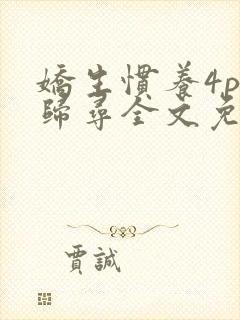 嬌生慣養4p
歸尋全文免
賈誠